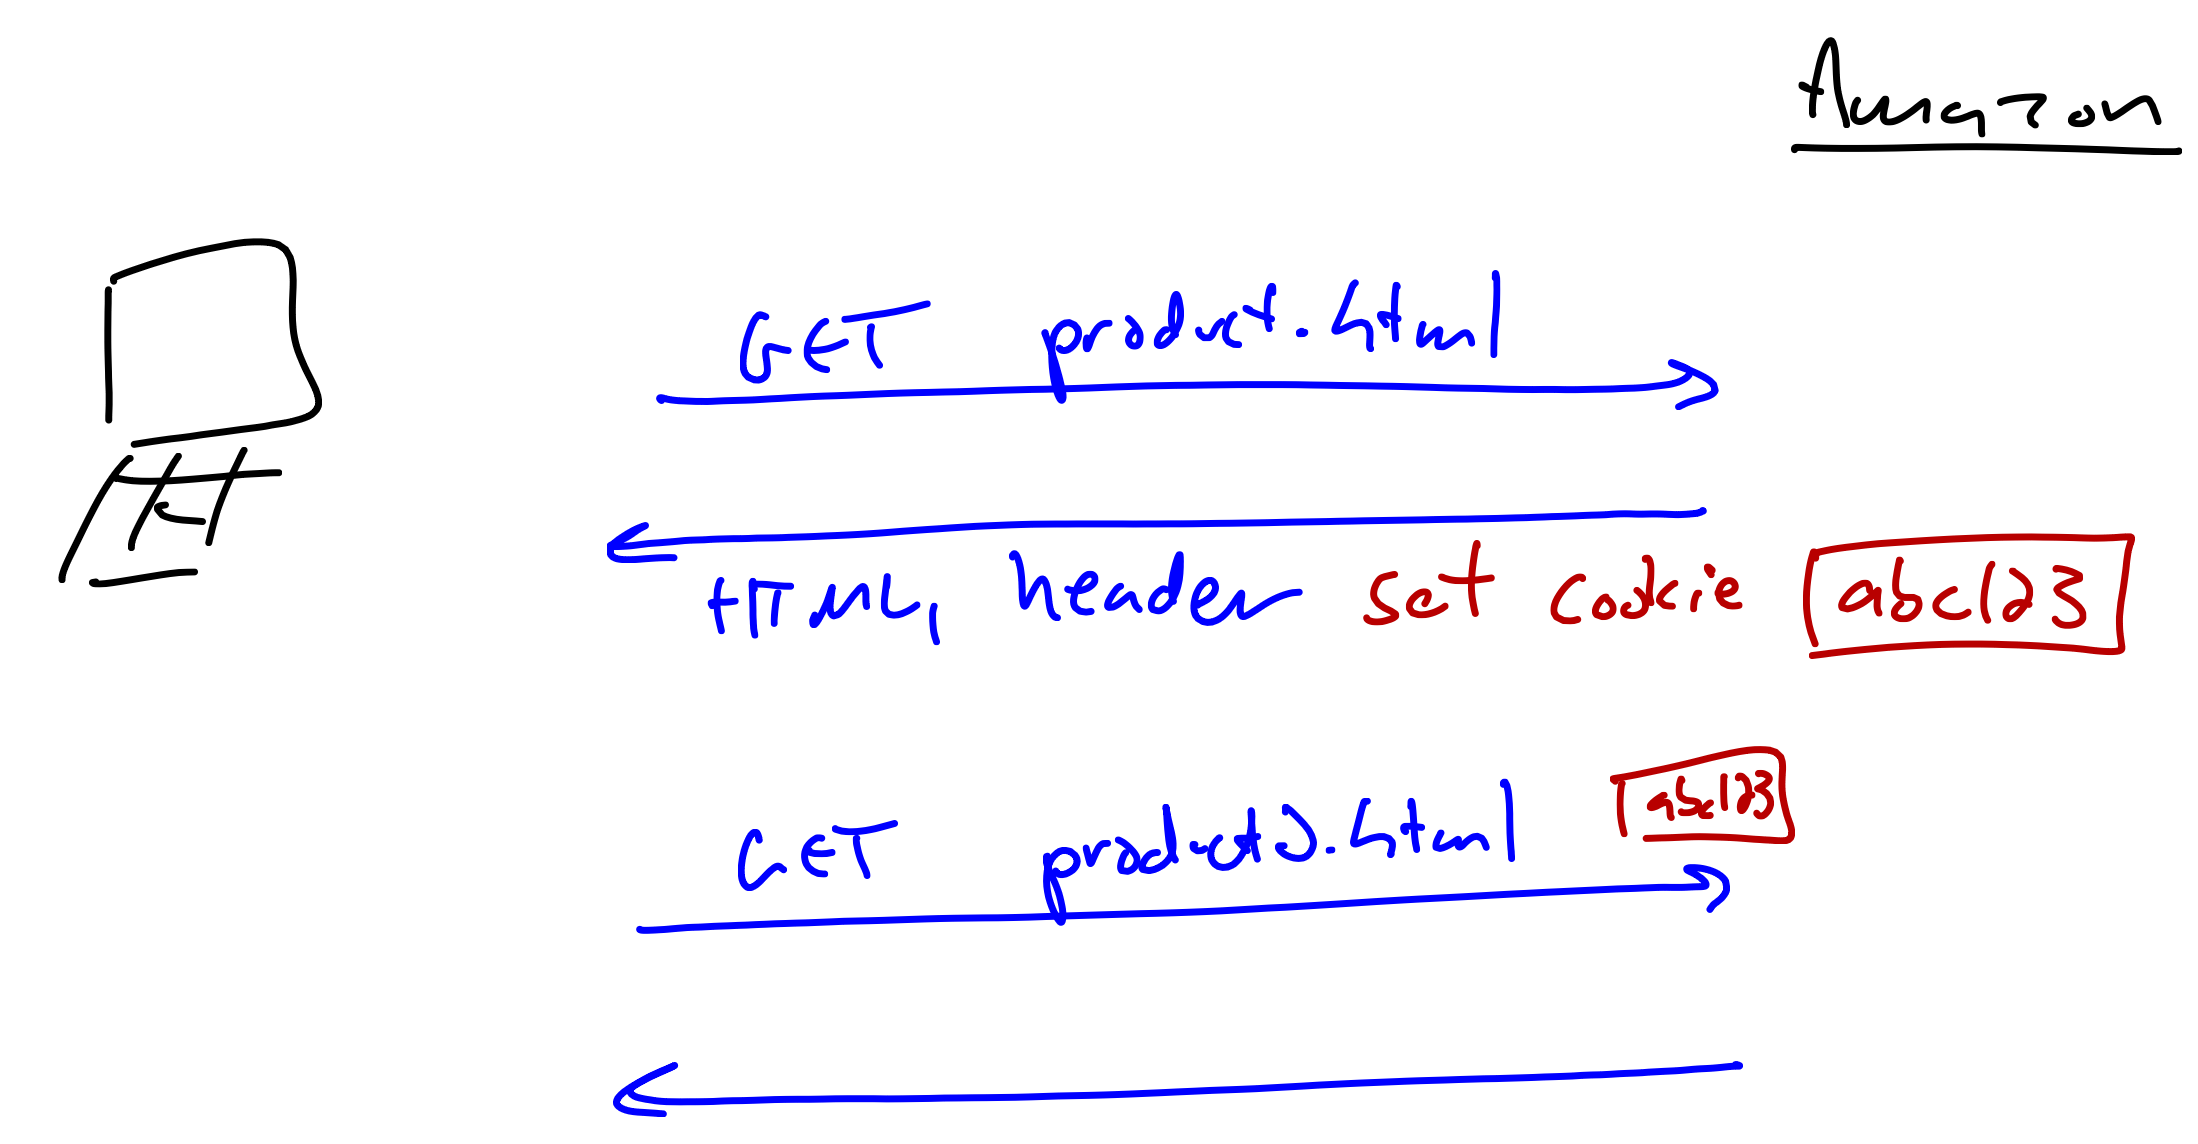 Amazon
GET product.html
HTML, header set cookie abc123
abc123
GET product2.html